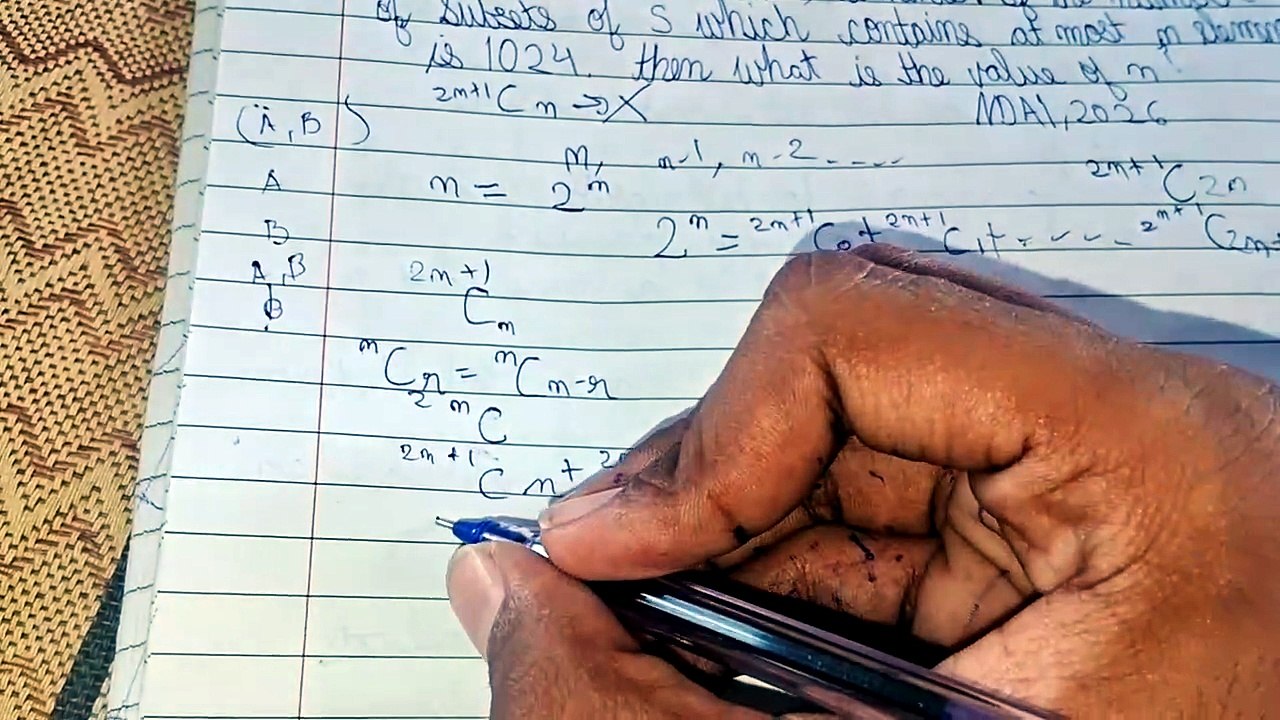 of subsets of S which contains at most n
is 1024. then what is the value of n?
2n+1Cn → X NDA1, 2026
(A, B)
n, n-1, n-2 -----
A n = 2^n 2n+1C2n
B 2^n = 2n+1C0 + 2n+1C1 + ----- 2n+1C2n+
A, B 2n+1Cn
B
nCr = nCn-r
2nC
2n+1Cn + 2